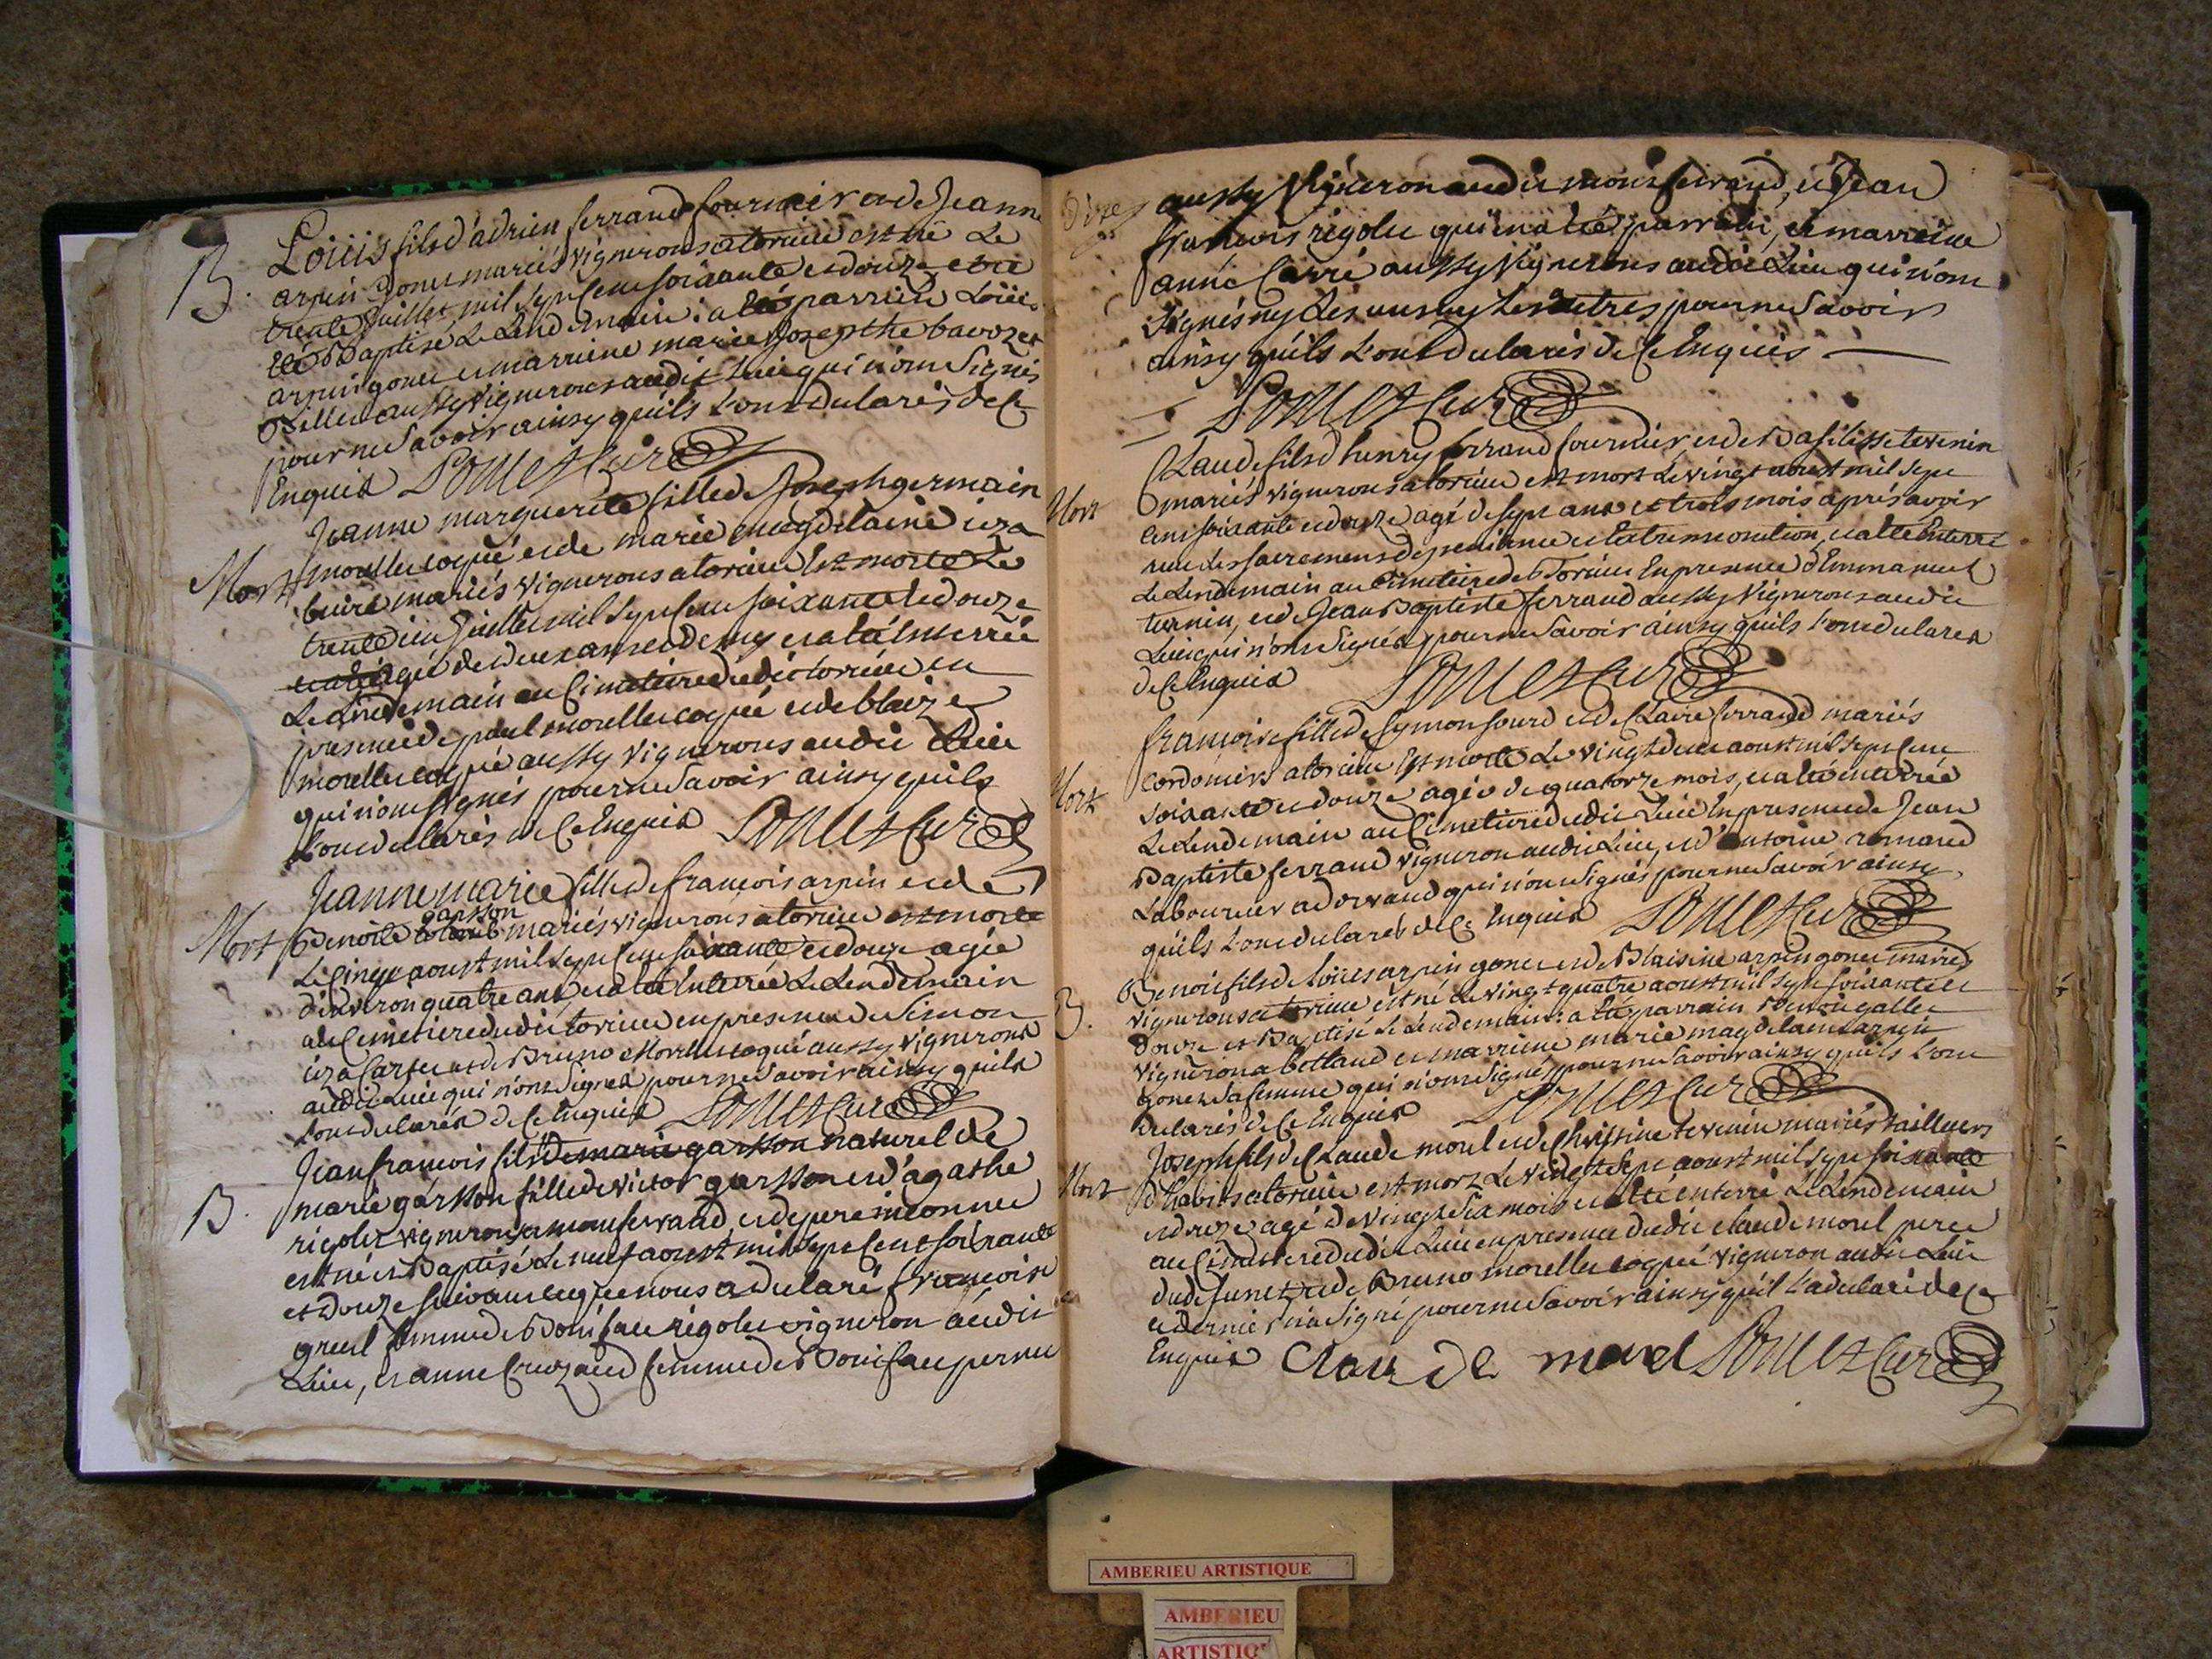 B.
Loüis fils d'adrien ferrand fournier et de Jeanne
arpin gonet mariés vignerons a torcieu est né Le
trente Juillet mil sept cent soixante et douze et a
été Baptisé Le Lendemain : a été parrain Loüis
arpin gonet et marraine marie Josephte bavozet
Billiet aussy vignerons audit Lieu qui n'ont Signés
pour ne Savoir ainsy qu'ils L'ont declarés de Ce
Enquis Poncet Curé
Mort
Jeanne marguerite fille de Joseph germain
morellet coqué et de marie magdelaine
mariés vignerons a torcieu Est morte Le
trente un Juillet mil sept cent soixante et douze
agée de deux ans et demy et a été Enterrée
Le Lendemain au Cimetiere dudit torcieu en
presence de paul morellet coqué et de blaize
morellet coqué aussy vignerons audit Lieu
qui n'ont Signés pour ne Savoir ainsy qu'ils
L'ont declarés de Ce Enquis Poncet Curé
Mort
Jeanne marie fille de francois arpin et de
garsson
Benoite mariés vignerons a torcieu est morte
Le Cinq aoust mil sept cent soixante et douze agée
d'environ quatre ans, et a été Enterrée Le Lendemain
au Cimetiere dudit torcieu en presence de Simon
et de Bruno Morellet coqué aussy vignerons
audit Lieu qui n'ont Signés pour ne Savoir ainsy qu'ils
L'ont declarés de Ce Enquis Poncet Curé
B.
Jean francois fils de marie garsson naturel de
marie garsson fille de victor garsson et d'agathe
rigolet vignerons a monferrand, et de pere inconnu
est né et Baptisé Le neuf aoust mil sept cent soixante
et douze suivant ce que nous a declaré francoise
greul femme de Boniface rigolet vigneron audit
Lieu, et anne Cruzand femme de Boniface pernet
aussy Vigneron audit monferrand, et Jean
francois rigolet qui en a été parrain, et marraine
anne Carré aussy Vignerons audit Lieu qui n'ont
Signés ny Les uns ny Les autres pour ne Savoir
ainsy qu'ils L'ont declarés de Ce Enquis
Poncet Curé
Mort
Claude fils d'henry ferrand fournier, et de Basilisse tevenin
mariés vignerons a torcieu est mort Le vingt aoust mil sept
cent soixante et douze agé de sept ans et trois mois aprés avoir
receu Les sacremens de penitence et L'extreme onction, et a été Enterré
Le Lendemain au Cimetiere de torcieu En presence d'Emmanuel
et de Jean Baptiste ferrand aussy Vignerons audit
Lieu qui n'ont Signés pour ne Savoir ainsy qu'ils L'ont declarés
de Ce Enquis Poncet Curé
Mort
francoise fille de Symon sourd et de Claire ferrand mariés
cordoniers a torcieu Est morte Le vingt deux aoust mil sept cent
soixante et douze agée de quatorze mois, et a été enterrée
Le Lendemain au Cimetiere dudit Lieu En presence de Jean
Baptiste ferrand vigneron audit Lieu, et d'antoine
Laboureur a dorvand qui n'ont Signés pour ne Savoir ainsy
qu'ils L'ont declarés de Ce Enquis Poncet Curé
B.
Benoit fils de Loüis arpin gonet et de Blaisine arpin gonet mariés
vignerons a torcieu est né Le vingt quatre aoust mil sept soixante et
douze et Baptisé Le Lendemain : a été parrain Benoit gallet
vigneron a bettand et marraine marie magdelaine arpin
gonet Sa femme qui n'ont Signés pour ne Savoir ainsy qu'ils L'ont
declarés de Ce Enquis Poncet Curé
Mort
Joseph fils de Claude morel et de Christine tevenin mariés tailleurs
d'habits a torcieu est mort Le vingt Sept aoust mil sept soixante
et douze agé de vingt Six mois et a été enterré Le Lendemain
au Cimetiere dudit Lieu en presence dudit claude morel pere
du defunct, et de Bruno morellet coqué vigneron audit Lieu
ce dernier n'a Signé pour ne Savoir ainsy qu'il L'a declaré de ce
Enquis Claude morel Poncet Curé
AMBERIEU ARTISTIQUE
AMBERIEU
ARTISTIQ